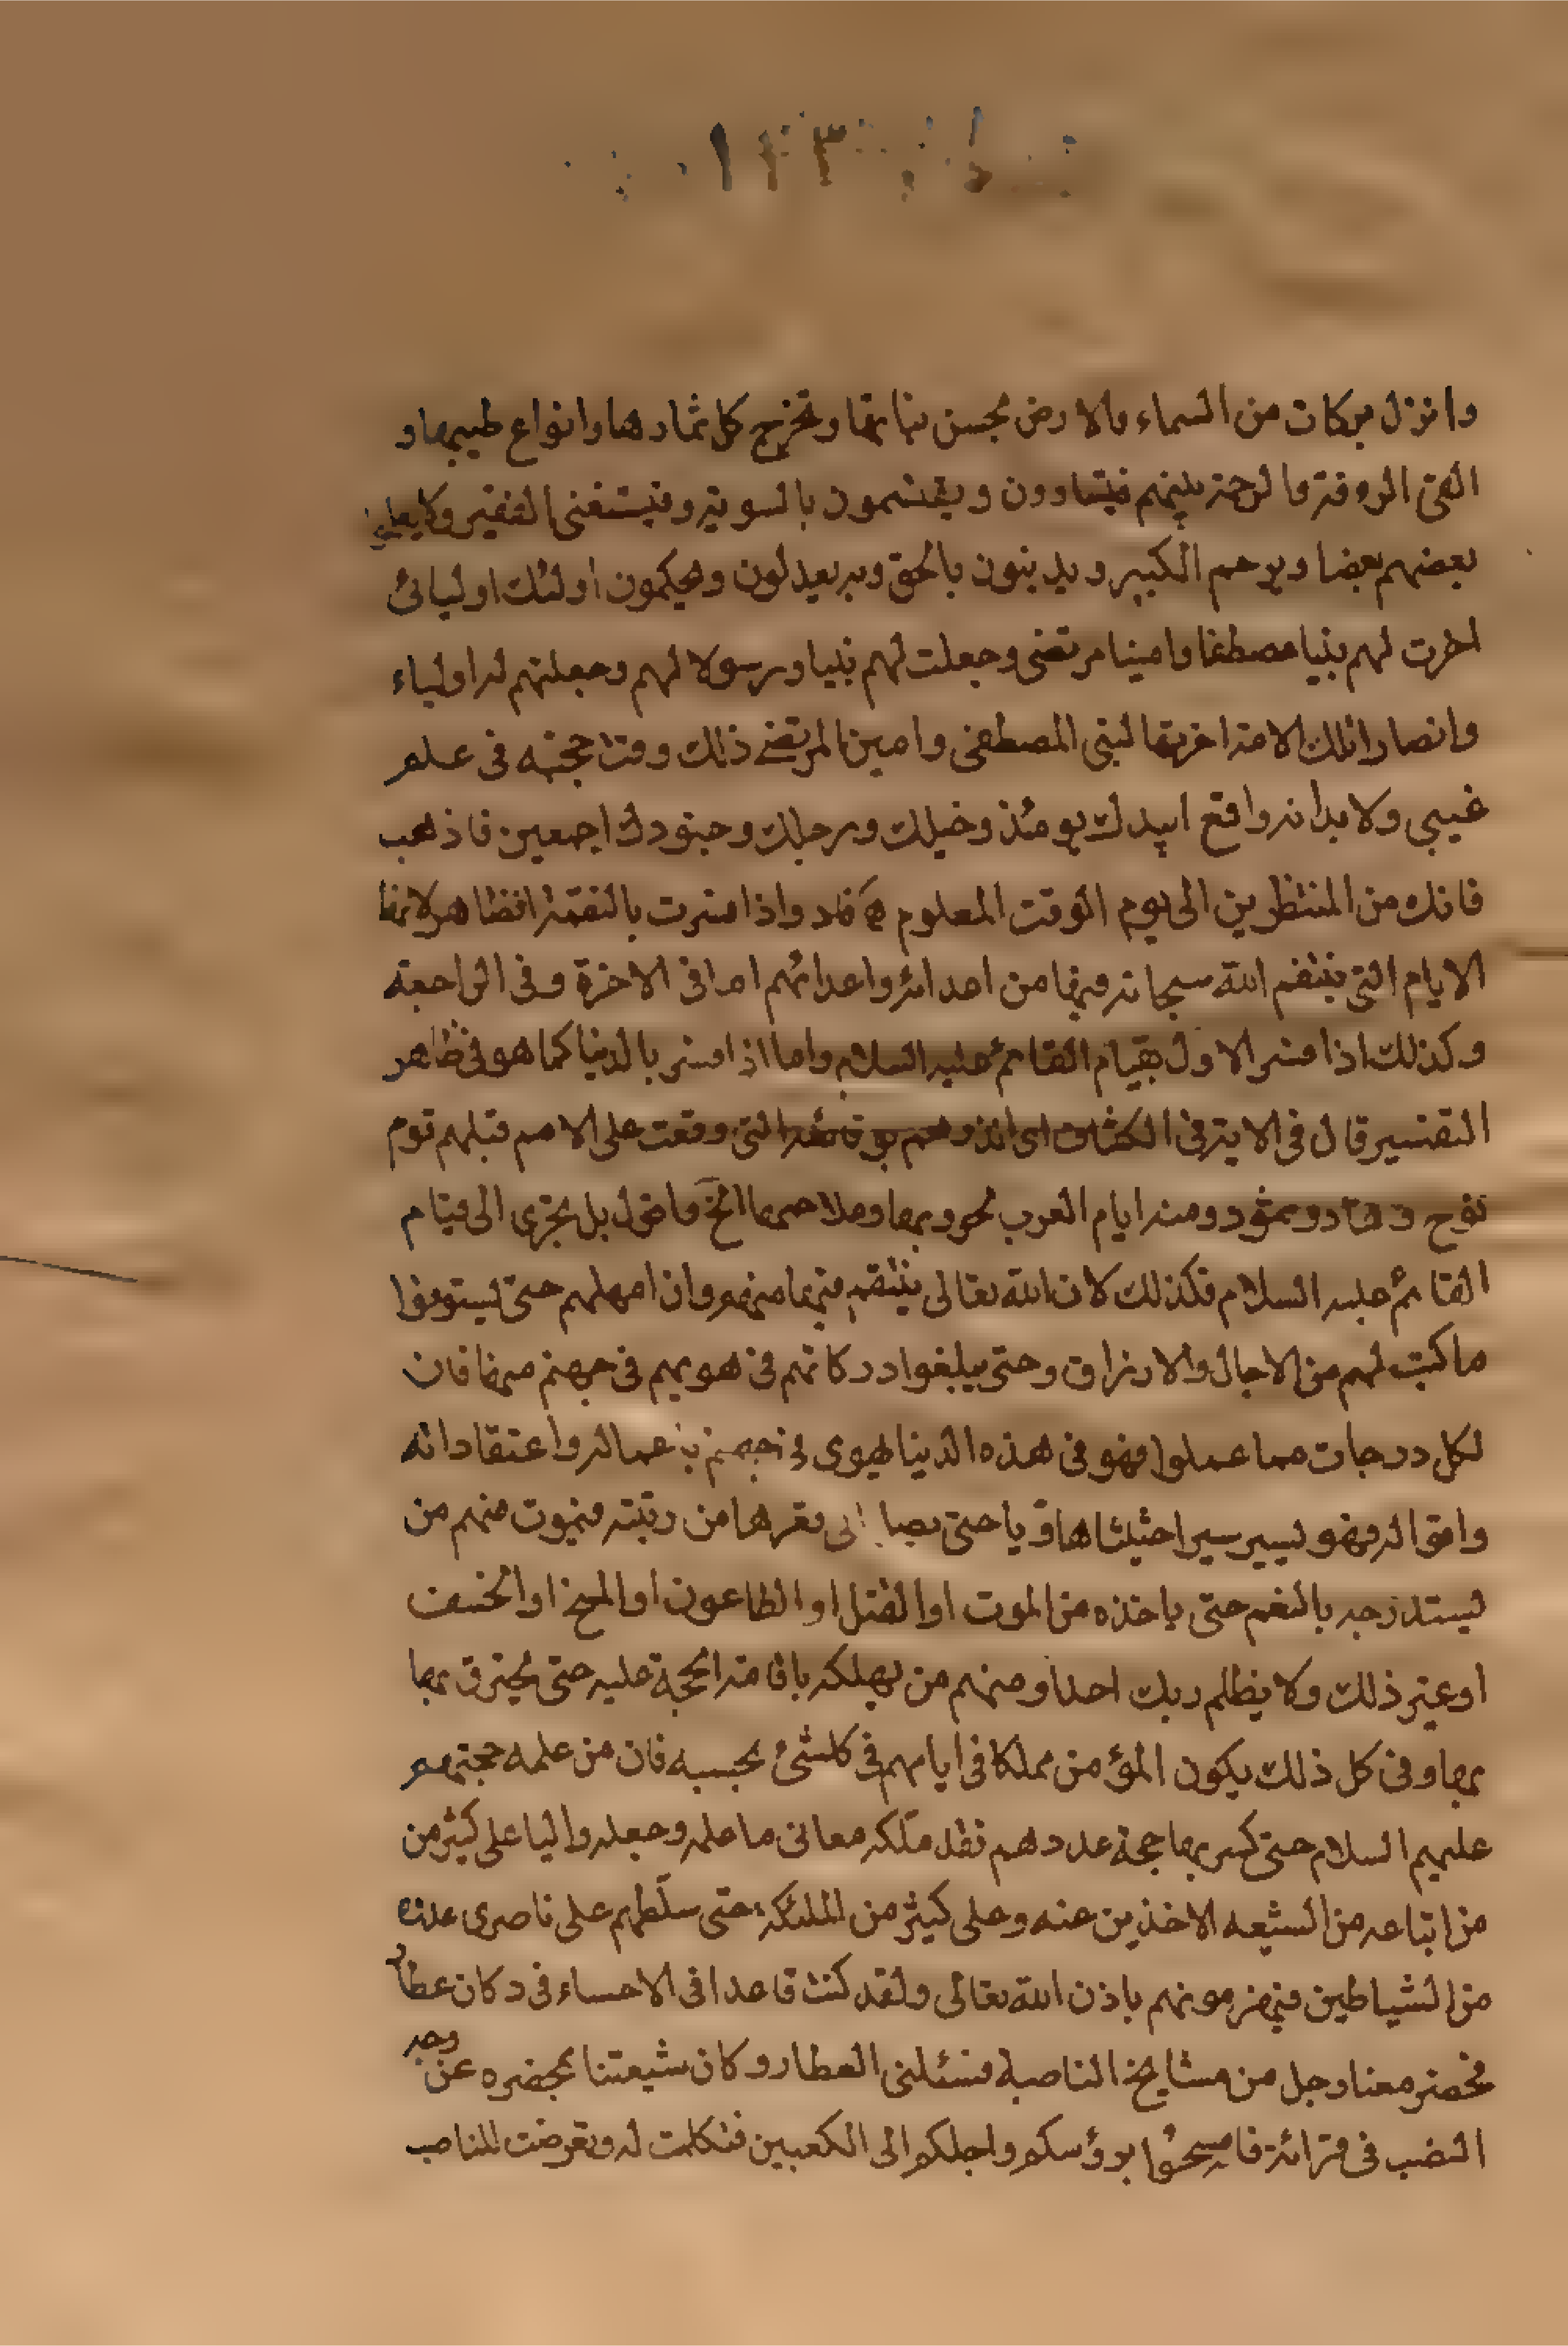 ١٢٣
وانزل بركات من السماء والارض بحسن نباتها وتخرج كل ثمارها وانواع طيبها و
القى الروفة والرحمة بينهم فيتساوون ويقتسمون بالسوية وفيستغنى الفقير ولا يعلو
بعضهم بعضا ويرحم الكبير ويدينون بالحق وبه يعدلون ويحكمون اولئك اوليائى
اخترت لهم نبيا مصطفا وامينا مرتضى وجعلت لهم نبيا ورسولا لهم وجعلتهم له اولياء
وانصارا تلك الامة اخرتها لنبى المصطفى وامين المرتضى ذلك وقت حجبته فى علم
غيبى ولا بد انه واقع ابيدك يومئذ وخيلك ورجلك وجنودك اجمعين فاذهب
فانك من المنتظرين الى يوم الوقت المعلوم واذا فسرت بالنقمة الظاهر لانها
الايام التى ينتقم الله سبحانه فيها من اعدائه واعدائهم اما فى الاخرة وفى الراجعة
وكذلك اذا فسر الاول بقيام القائم عليه السلام واما اذا فسر بالدنيا كما هو فى ظاهر
التفسير قال فى الاية فى الكشاف اى انذرهم بوقائعه التى وقعت على الامم قبلهم قوم
نوح وعاد وثمود ومنه ايام العرب لحروبها وملاحمها الخ واقول بل يجرى الى قيام
القائم عليه السلام فكذلك لان الله تعالى ينتقم فيها منهم وان امهلهم حتى ليستوفوا
ما كتب لهم من الاجال والارزاق وحتى يبلغوا دركاتهم فى هويهم فى جهنم منها فان
لكل درجات مما عملوا فهو فى هذه الدنيا يهوى فى جهنم باعماله واعتقاداته
واقواله فهو ليسير سيرا حثيثا هاويا حتى الى مقرها من رتبته فيموت منهم من
ليستدرجه بالنعم حتى ياخذه من الموت او القتل او الطاعون او المسخ او الخسف
او غير ذلك ولا يظلم ربك احدا ومنهم من يهلكه باقامة الحجة عليه حتى يحترق بها
بها وفى كل ذلك يكون المؤمن مملكا فى ايامهم فى كلشئ بحسبه فان من علمه حجتهم
عليهم السلام حتى كسر بها حجة عددهم فقد ملكه معانى ما علمه وجعله واليا على كثير من
من اتباعه من الشيعه الاخذين عنه وعلى كثير من الملئكة حتى سلّطهم على ناصرى عدوه
من الشياطين فيهزمونهم باذن الله تعالى ولقد كنت قاعدا فى الاحساء فى دكان عطار
فحضر معنا رجل من مشايخ الناصبة فسئلنى العطار وكان شيعتنا بحضره عن وجه
النصب فى قرائة فامسحوا برؤسكم وارجلكم الى الكعبين فتكلمت له وتعرضت للناصب